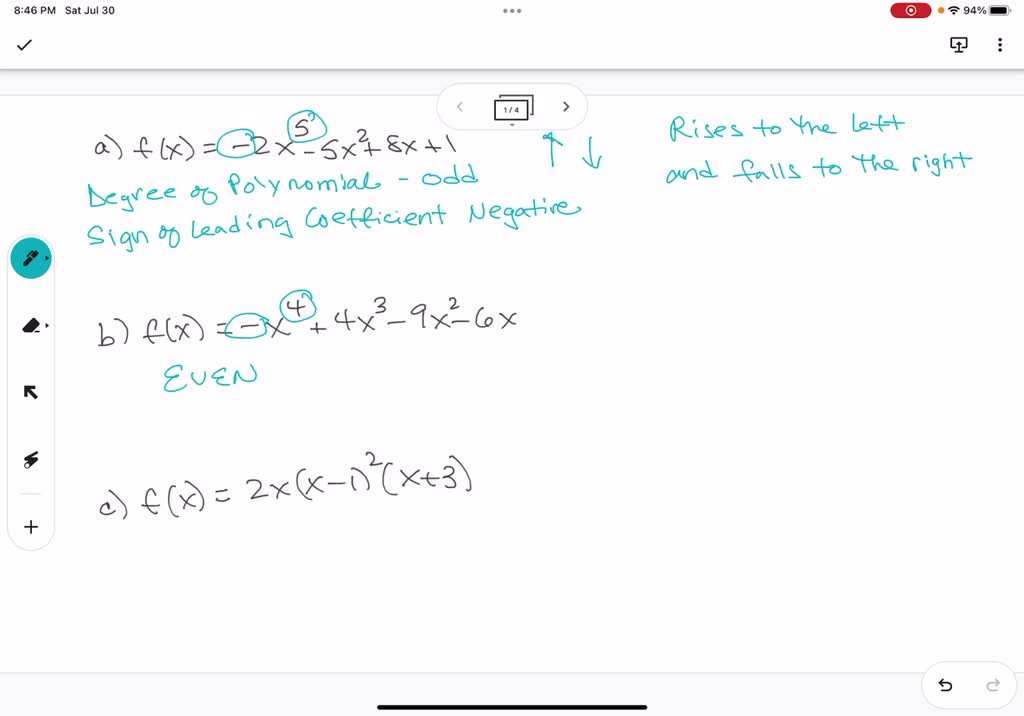 8:46 PM Sat Jul 30
94%
1/4
a) f(x) = -2x⁵ - 5x² + 8x + 1
Rises to the left
and falls to the right
Degree of Polynomial - odd
Sign of Leading Coefficient Negative
b) f(x) = -x⁴ + 4x³ - 9x² - 6x
EVEN
c) f(x) = 2x(x-1)²(x+3)